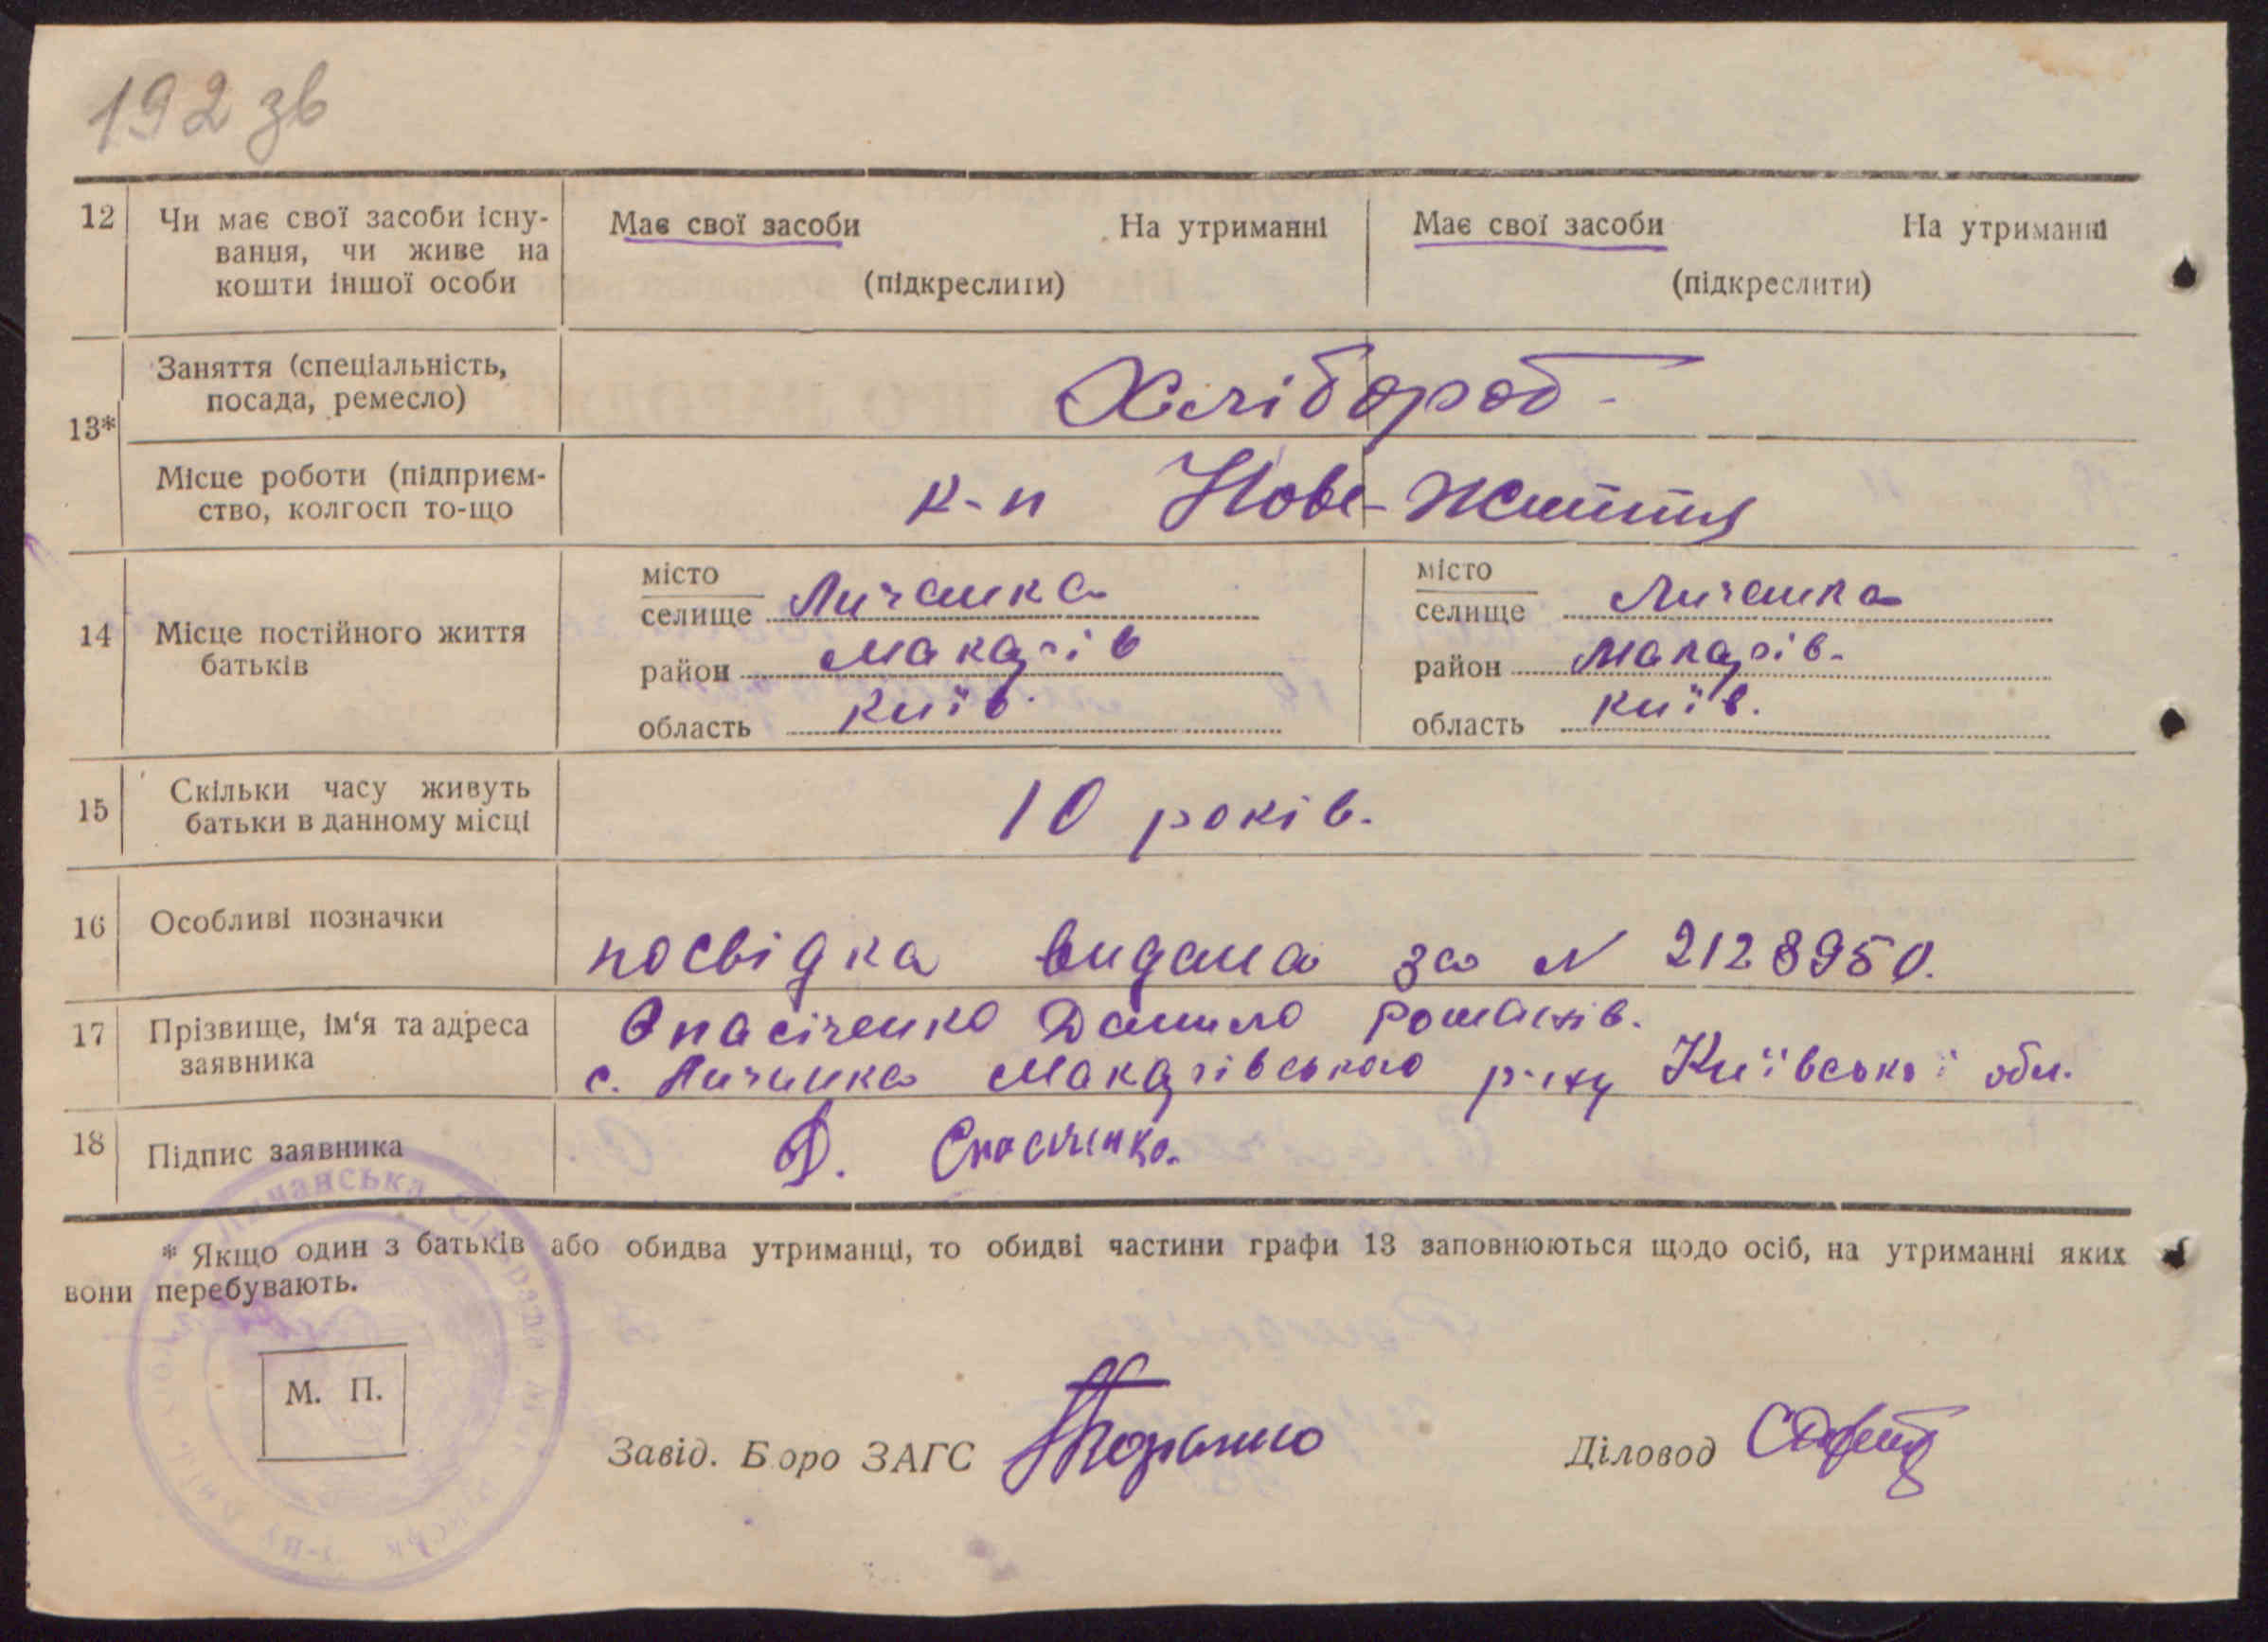 192 зв
12 Чи має свої засоби існу-
вання, чи живе на
кошти іншої особи
Має свої засоби На утриманні
(підкреслити)
Має свої засоби На утриманні
(підкреслити)
13*
Заняття (спеціальність,
посада, ремесло)
Хлібороб-
Місце роботи (підприєм-
ство, колгосп то-що
к-п Нове-Життя
14 Місце постійного життя
батьків
місто
селище Личанка
район Макарів
область Київ.
місто
селище Личанка
район Макарів.
область Київ.
15 Скільки часу живуть
батьки в данному місці
10 років.
16 Особливі позначки
посвідка видана за N 2128950.
17 Прізвище, ім'я та адреса
заявника
Опасіченко Данило Романів.
с. Личанка Макарівського р-ну Київської обл.
18 Підпис заявника
Д. Опасіченко.
* Якщо один з батьків або обидва утриманці, то обидві частини графи 13 заповнюються щодо осіб, на утриманні яких
вони перебувають.
Личанська Сільрада
М. П.
Завід. Бюро ЗАГС
Діловод